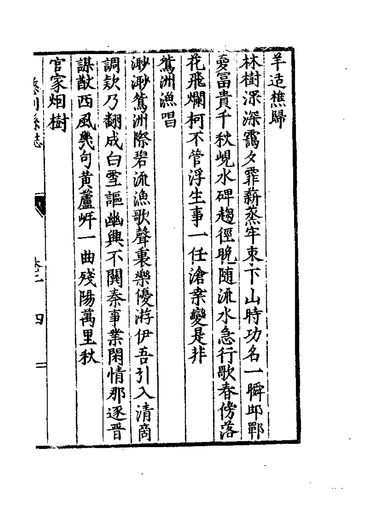 羊造樵歸
林樹深深靄夕霏薪蒸牢束下山時功名一瞬邯鄲
憂富貴千秋峴水碑趨徑晚隨流水急行歌春傍落
花飛爛柯不管浮生事一任滄桑變是非
鴛洲漁唱
渺渺鴛洲際碧流漁歌聲裏樂優游伊吾引入清商
調欸乃翻成白雪謳幽興不關秦事業閑情那逐晉
謀猷西風幾句黃蘆岍一曲殘陽萬里秋
官家炯樹
縣志
卷十
四